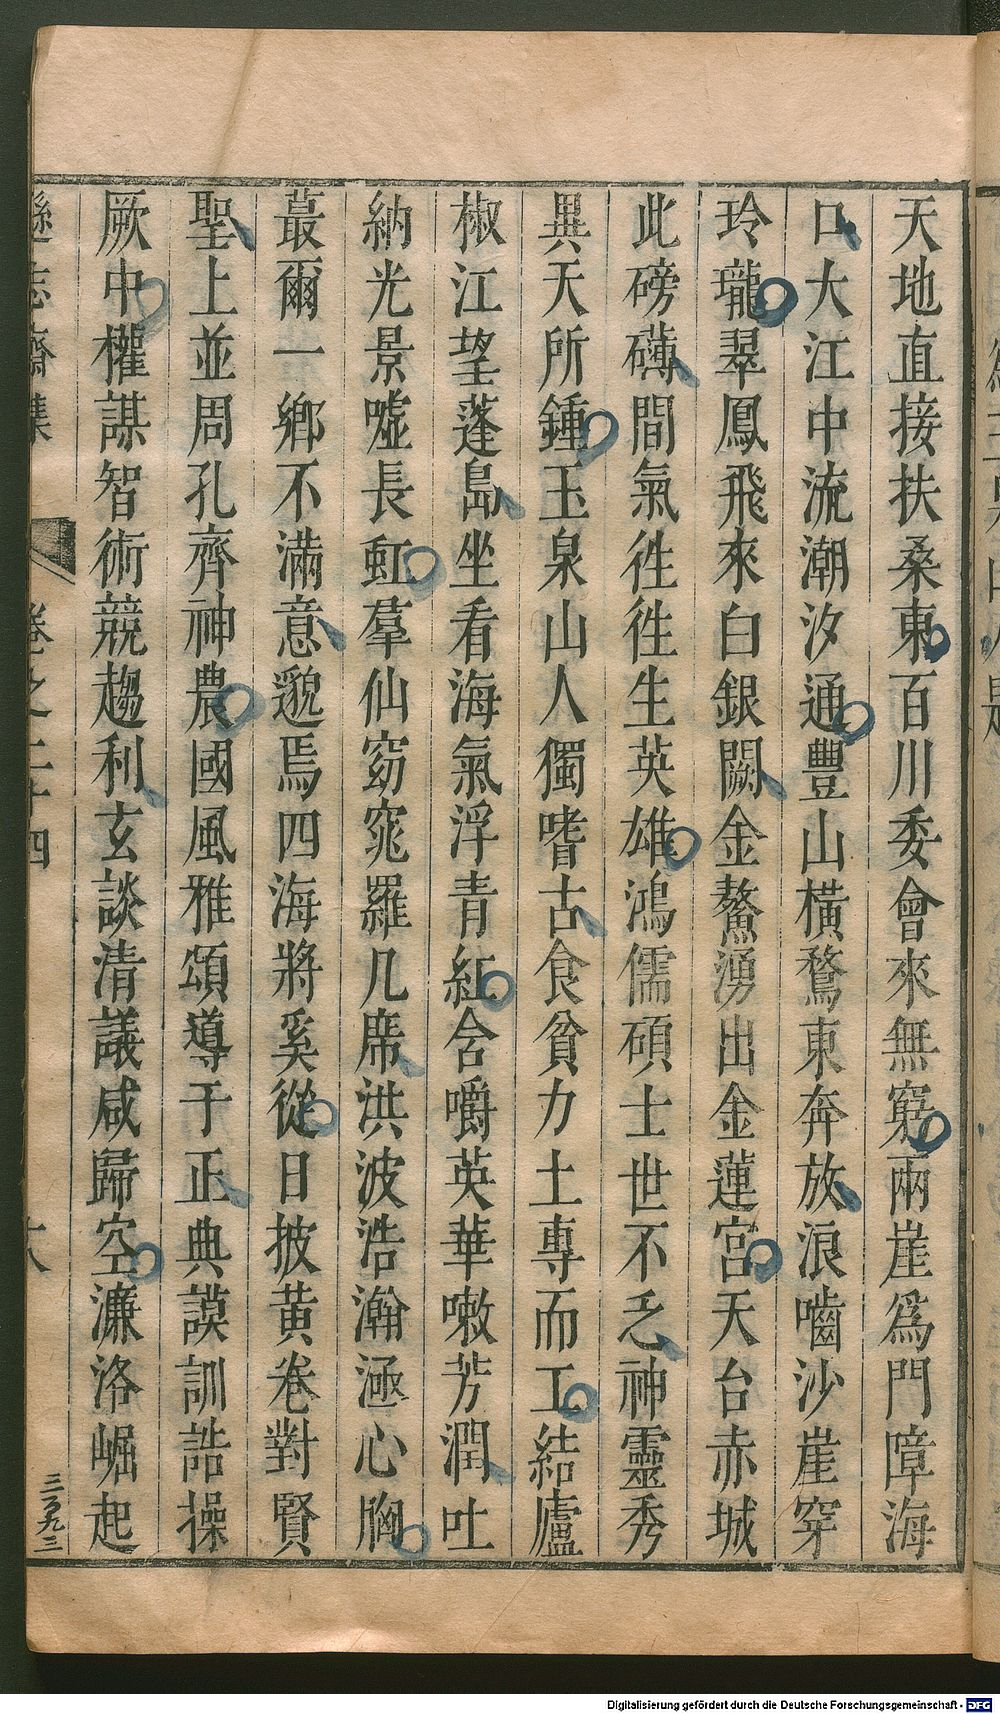 天地直接扶桑東百川委會來無窮兩崖爲門障海
口大江中流潮汐通豐山橫鶩東奔放浪嚙沙崖穿
玲瓏翠鳳飛來白銀闕金鰲湧出金蓮宮天台赤城
此磅礡間氣徃徃生英雄鴻儒碩士世不乏神靈秀
異天所鍾玉泉山人獨嗜古食貧力土專而工結廬
椒江望蓬島坐看海氣浮青紅含嚼英華嗽芳潤吐
納光景噓長虹羣仙窈窕羅几席洪波浩瀚涵心胸
蕞爾一鄉不滿意邈焉四海將奚從日披黃卷對賢
聖上並周孔齊神農國風雅頌導于正典謨訓誥操
厥中權謀智術競趨利玄談清議咸歸空濂洛崛起
遜志齋集
卷之二十四
三百九三
Digitalisierung gefördert durch die Deutsche Forschungsgemeinschaft - DFG